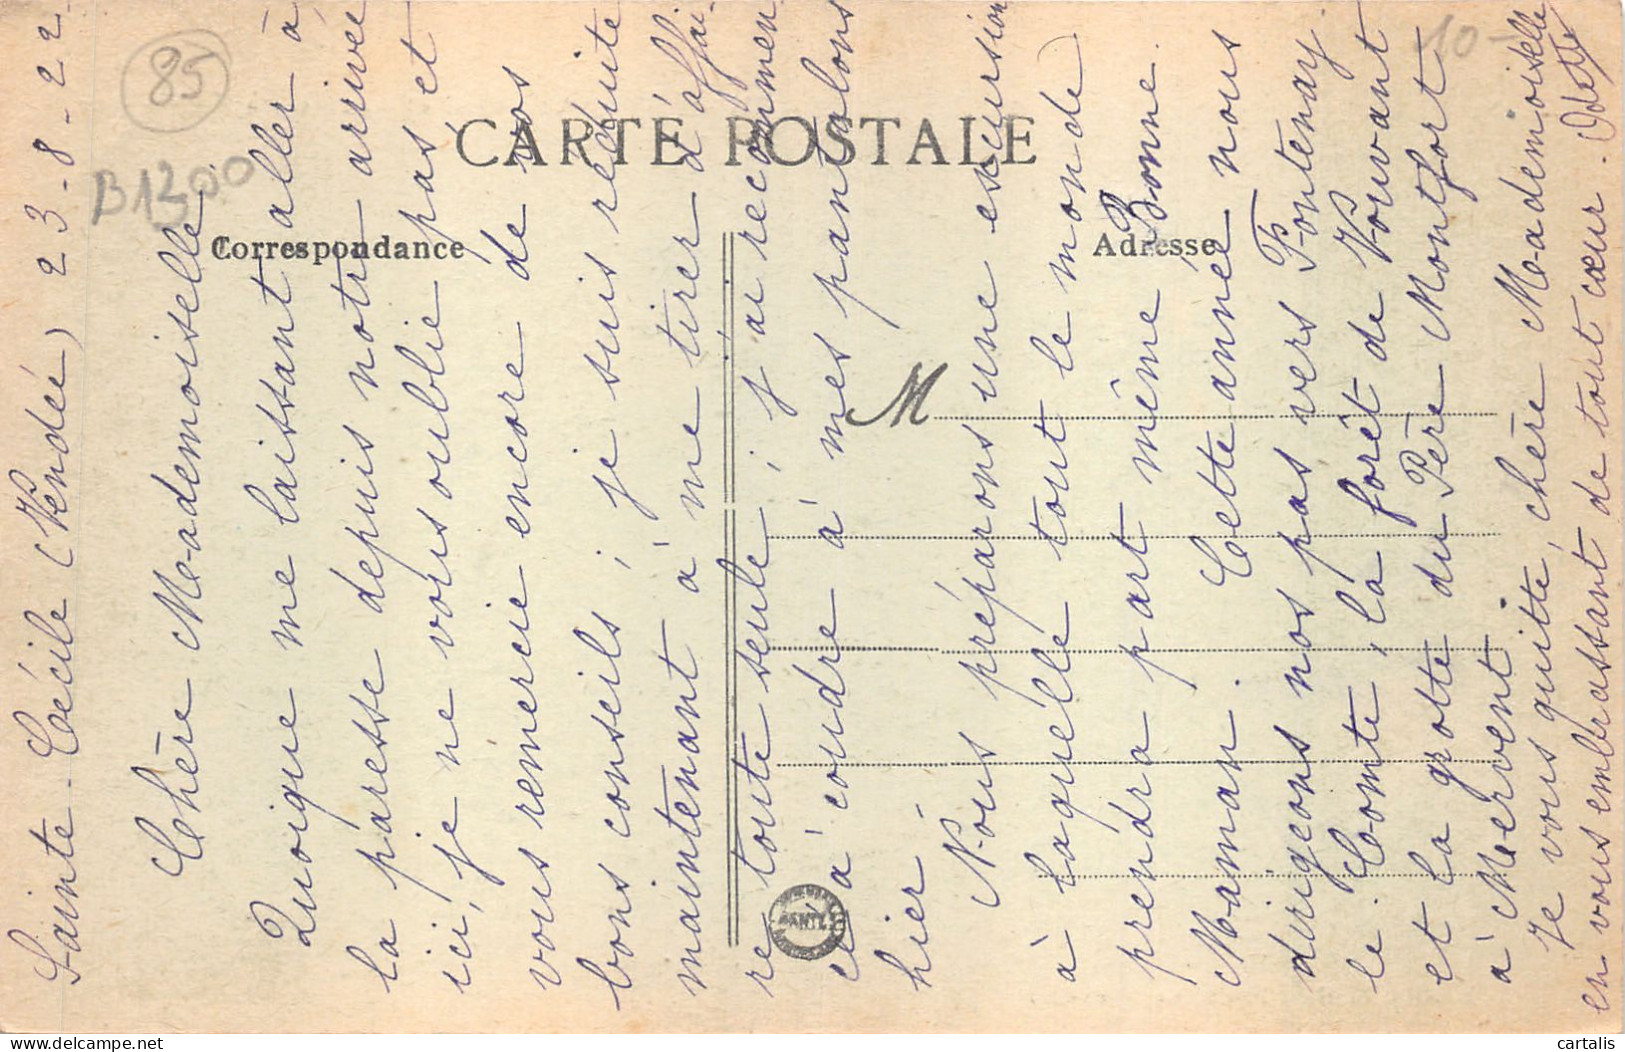 Sainte-Cécile (Vendée) 23-8-22
Chère Mademoiselle
Quoique me laissant aller à
la paresse depuis notre arrivée
ici, je ne vous oublie pas et
vous remercie encore de vos
bons conseils ; je suis réduite
maintenant à me tirer d'affai-
re toute seule ; j'ai recommen
cé à coudre à mes pantalons
hier.
Nous préparons une excursion
à laquelle tout le monde
prendra part même Bonne
Maman. Cette année nous
dirigeons nos pas vers Fontenay
le Comte, la forêt de Vouvant
et la grotte du Père Montfort
à Mervent.
Je vous quitte, chère Mademoiselle
en vous embrassant de tout cœur. Odette
CARTE POSTALE
Correspondance
Adresse
M
85
B1300
10-
cartalis